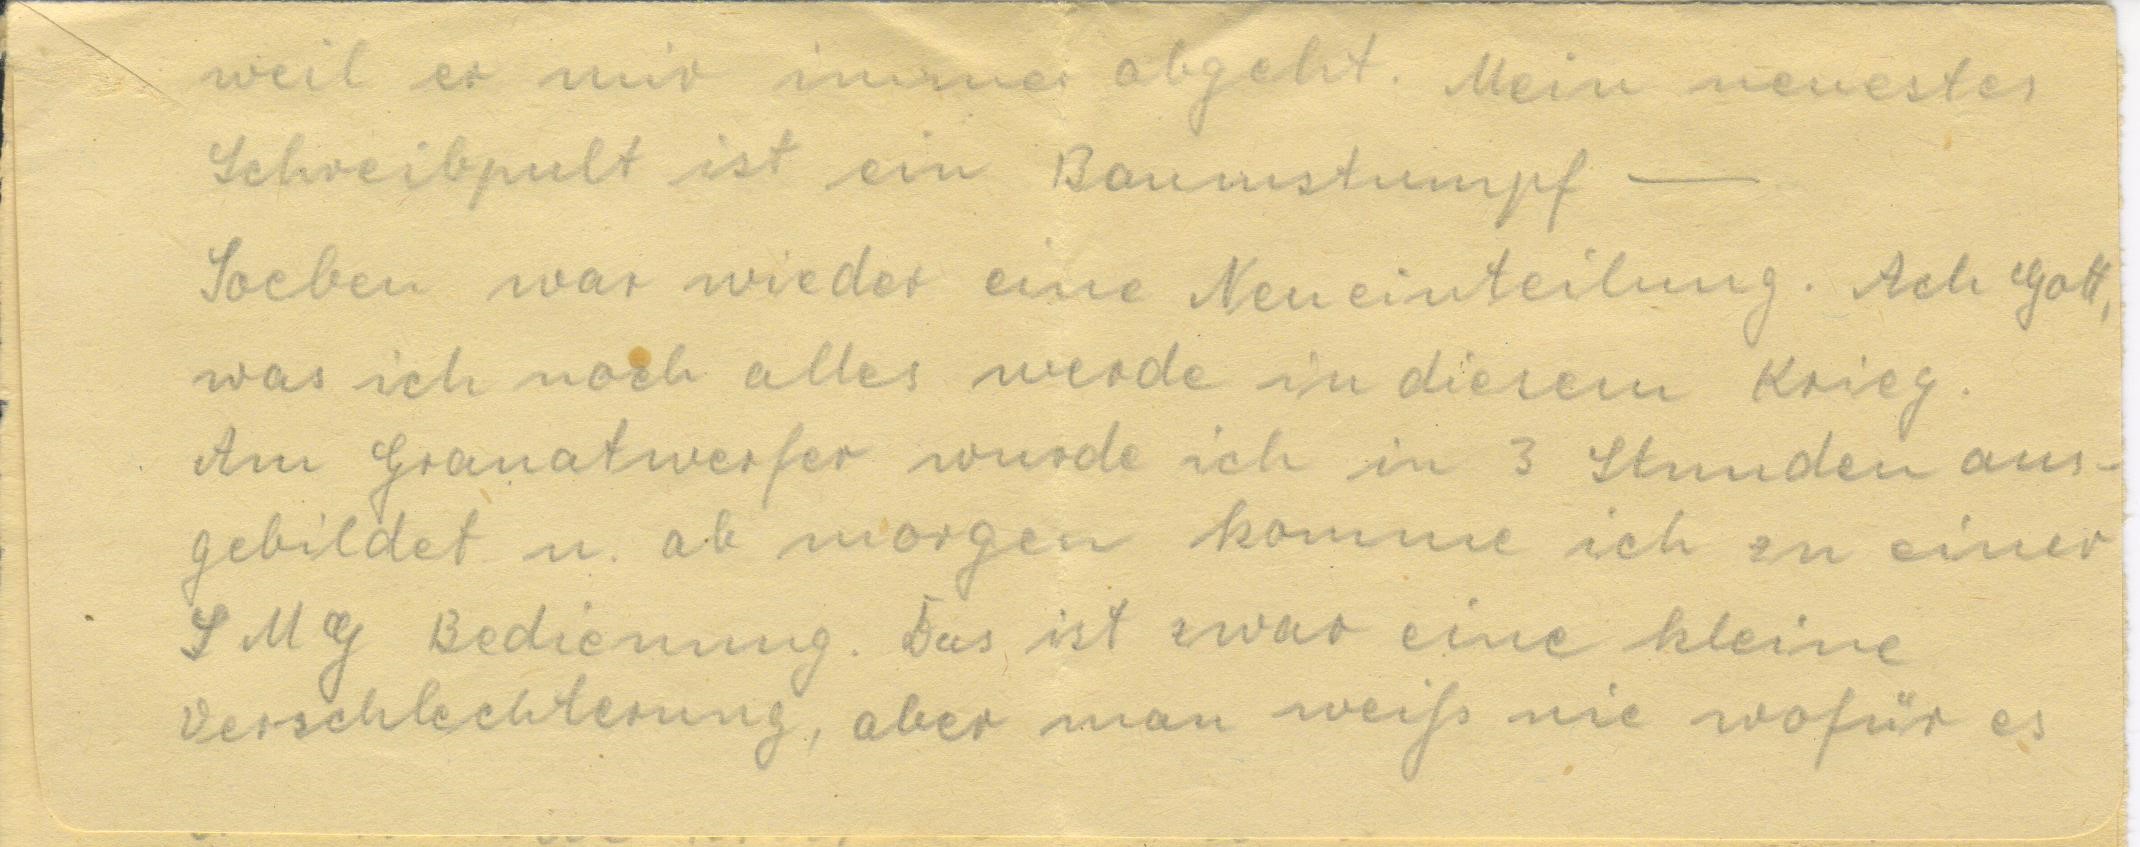 weil er mir immer abgeht. Mein neuester
Schreibpult ist ein Baumstumpf —
Soeben war wieder eine Neueinteilung. Ach Gott,
was ich noch alles werde in diesem Krieg.
Am Granatwerfer wurde ich in 3 Stunden aus-
gebildet u. ab morgen komme ich zu einer
SMG Bedienung. Das ist zwar eine kleine
Verschlechterung, aber man weiß nie wofür es